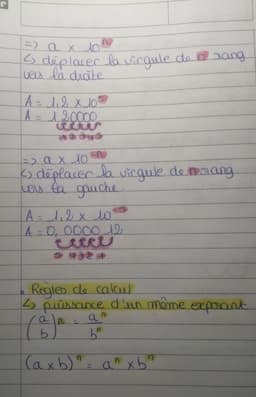 => a × 10ⁿ
↳ déplacer la virgule de n rang
vers la droite
A = 1,2 × 10⁵
A = 120000
=> a × 10⁻ⁿ
↳ déplacer la virgule de n rang
vers la gauche
A = 1,2 × 10⁻⁵
A = 0,000012
• Règles de calcul
↳ puissance d'un même exposant
(a/b)ⁿ = aⁿ/bⁿ
(a×b)ⁿ = aⁿ × bⁿ